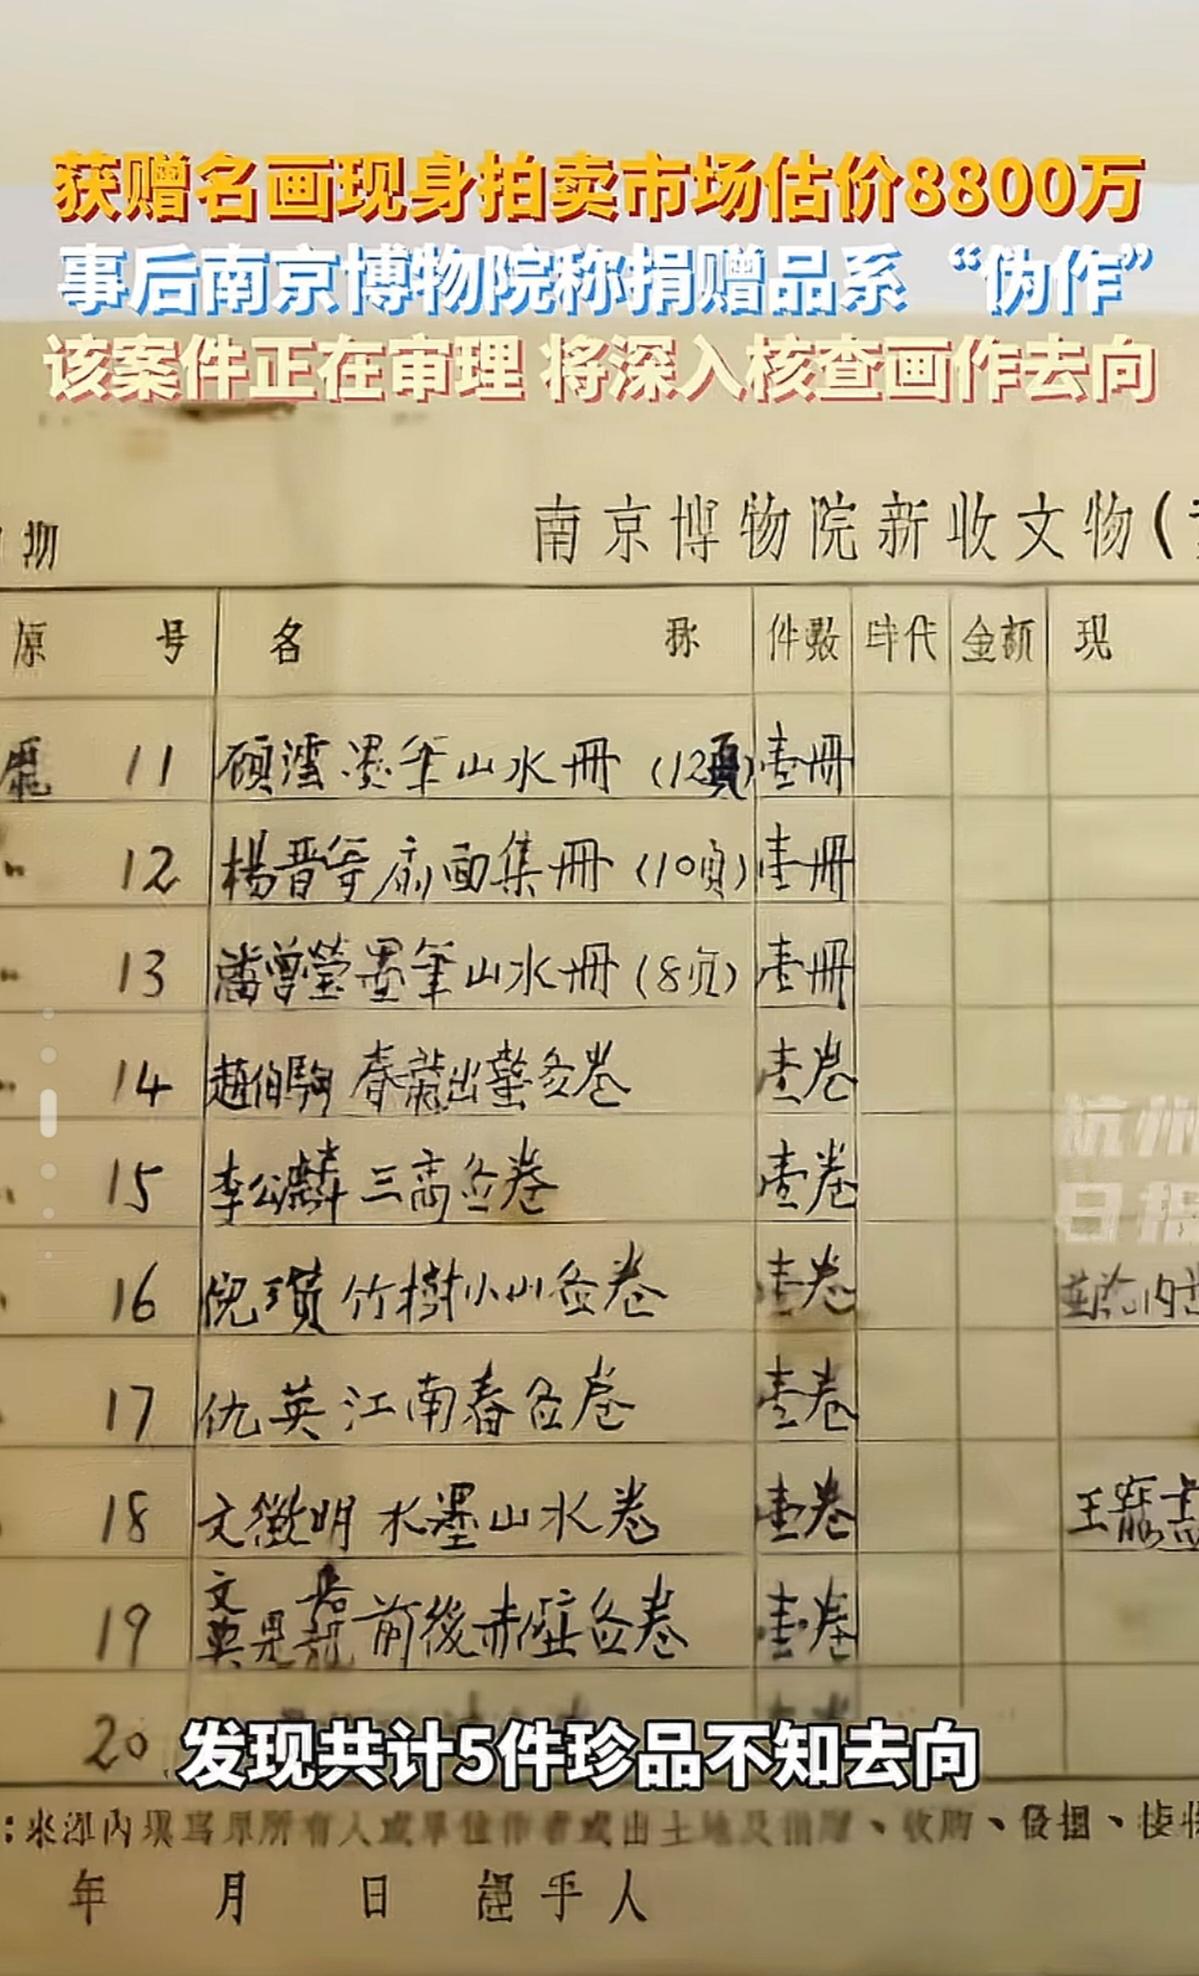 获赠名画现身拍卖市场估价8800万
事后南京博物院称捐赠品系“伪作”
该案件正在审理 将深入核查画作去向
期
南京博物院新收文物(
原 号 名 称 件数 时代 金额 现
11 顾澐墨笔山水册(12頁) 壹册
12 楊晋等扇面集册(10頁) 壹册
13 潘曾莹墨笔山水册(8页) 壹册
14 趙伯駒 春 出蟄图卷 壹卷
15 李公麟 三高图卷 壹卷
16 倪瓒 竹樹小山图卷 壹卷
17 仇英 江南春图卷 壹卷
18 文徵明 水墨山水卷 壹卷 王
19 文 前後赤壁图卷 壹卷
20
发现共计5件珍品不知去向
:来源内填写原所有人或单位作者或出土地及捐赠、收购、發掘、接
年 月 日 經手人
杭州
日报